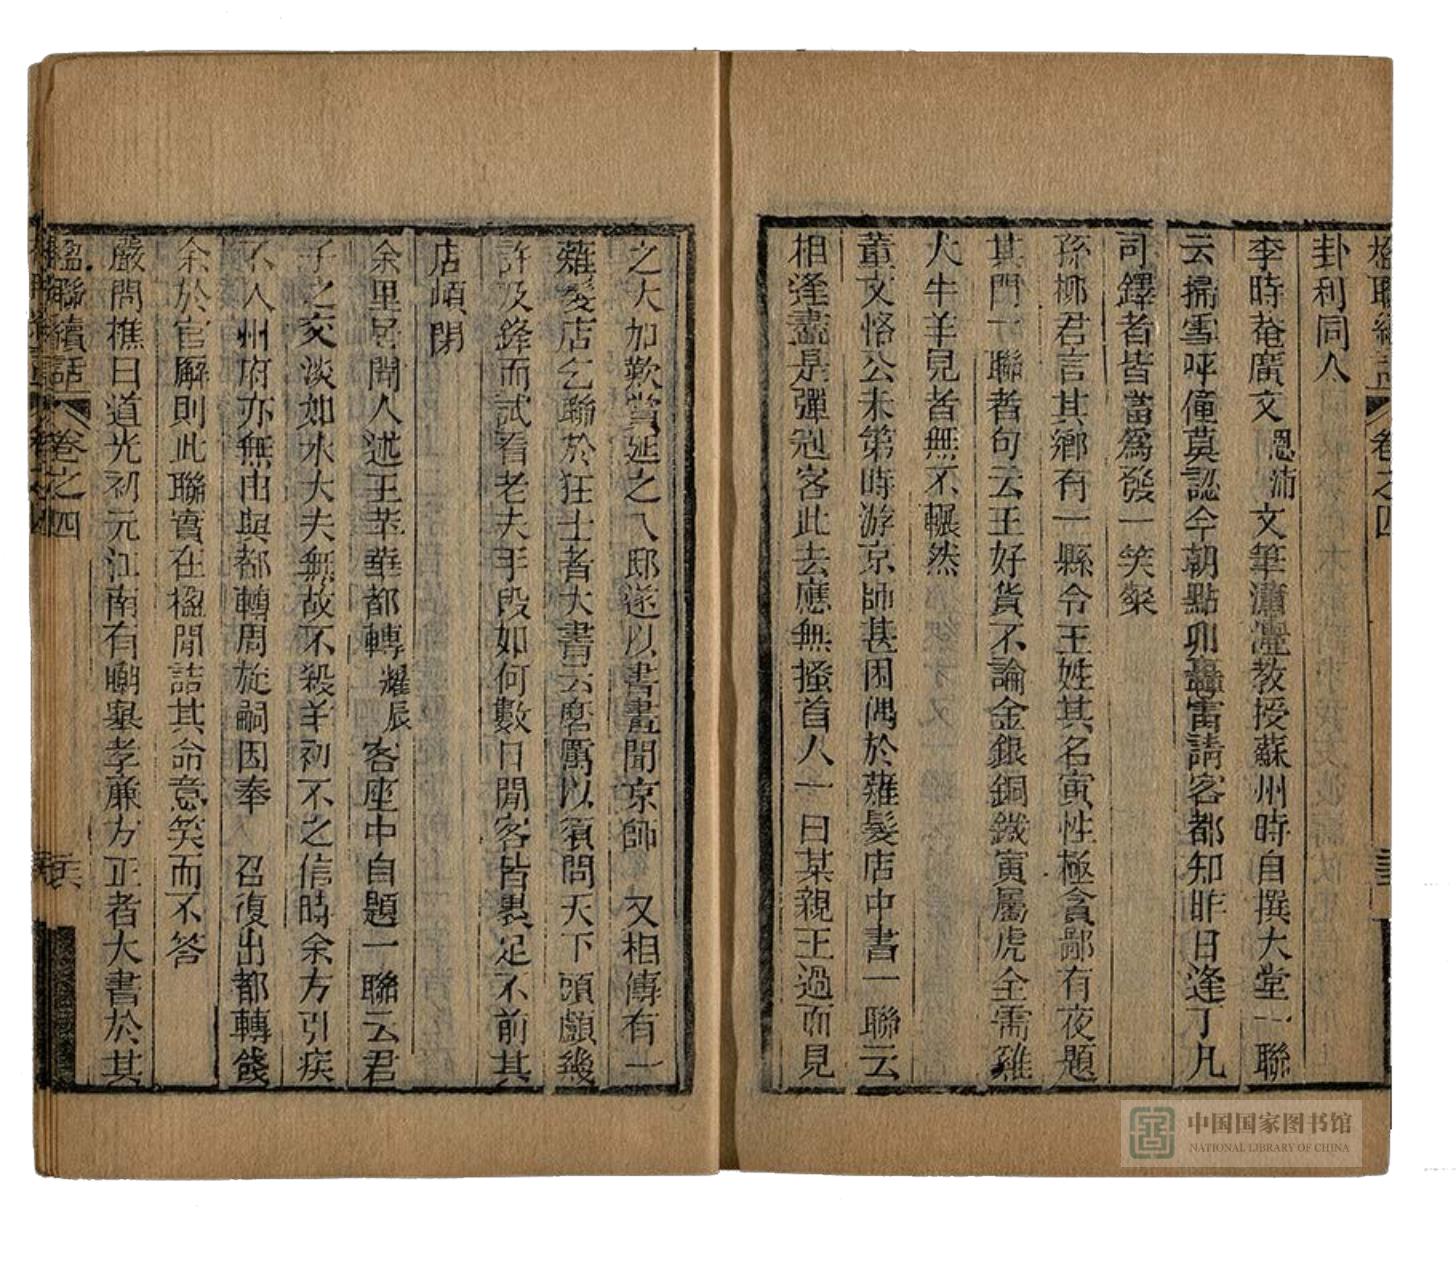 楹聯續話 卷之四
卦利同人
李時菴廣文恩沛文筆瀟灑教授蘇州時自撰大堂一聯
云掃雪呼僮莫認今朝點卯轟雷請客都知昨日逢丁凡
司鐸者皆當爲發一笑粲
孫柳君言其鄉有一縣令王姓其名寅性極貪鄙有夜題
其門一聯者句云王好貨不論金銀銅鐵寅屬虎全需雞
犬牛羊見者無不囅然
董文恪公未第時游京師甚困偶於薙髮店中書一聯云
相逢盡是彈冠客此去應無搔首人一日某親王過而見
之大加歎賞延之入邸遂以書畫聞京師 又相傳有一
薙髮店乞聯於狂士者大書云磨厲以須問天下頭顱幾
許及鋒而試看老夫手段如何數日閒客皆畏足不前其
店頓閉
余里居聞人述王苹華都轉耀辰客座中自題一聯云君
子之交淡如水大夫無故不殺羊初不之信時余方引疾
不入州府亦無由與都轉周旋嗣因奉 召復出都轉餞
余於官廨則此聯實在楹閒詰其命意笑而不答
嚴問樵曰道光初元江南有嘲舉孝亷方正者大書於其
楹聯續話 卷之四